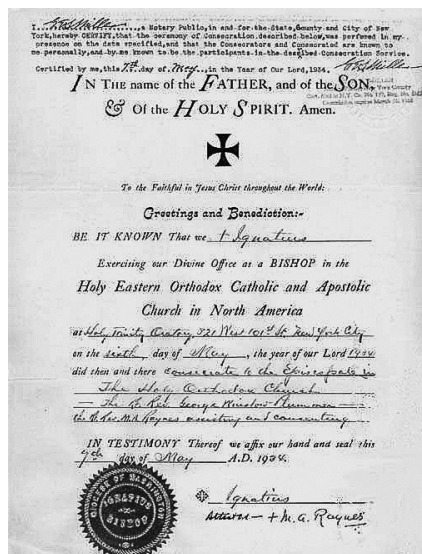 I, G.E.S. Miller, a Notary Public, in and for the State, County and City of New
York, hereby CERTIFY, that the ceremony of Consecration described below, was performed in my
presence on the date specified, and that the Consecrators and Consecrated are known to
me personally, and by me known to be the participants in the described Consecration Service.
Certified by me, this 7th day of May, in the Year of Our Lord, 1934.
IN THE name of the FATHER, and of the SON,
& Of the HOLY SPIRIT. Amen.
York County
To the Faithful in Jesus Christ throughout the World:
Greetings and Benediction:-
BE IT KNOWN That we + Ignatius
Exercising our Divine Office as a BISHOP in the
Holy Eastern Orthodox Catholic and Apostolic
Church in North America
at Holy Trinity Oratory, 321 West 101st St. New York City
on the sixth day of May, the year of our Lord 1934
did then and there consecrate to the Episcopate in
The Holy Orthodox Church
— The Rt. Rev. George Winslow Plummer —
the Rt. Rev. M.A. Raynes assisting and consenting
IN TESTIMONY Thereof we affix our hand and seal this
7th day of May A.D. 1934.
Ignatius
+ M. A. Raynes
DIOCESE OF WASHINGTON
IGNATIUS
BISHOP